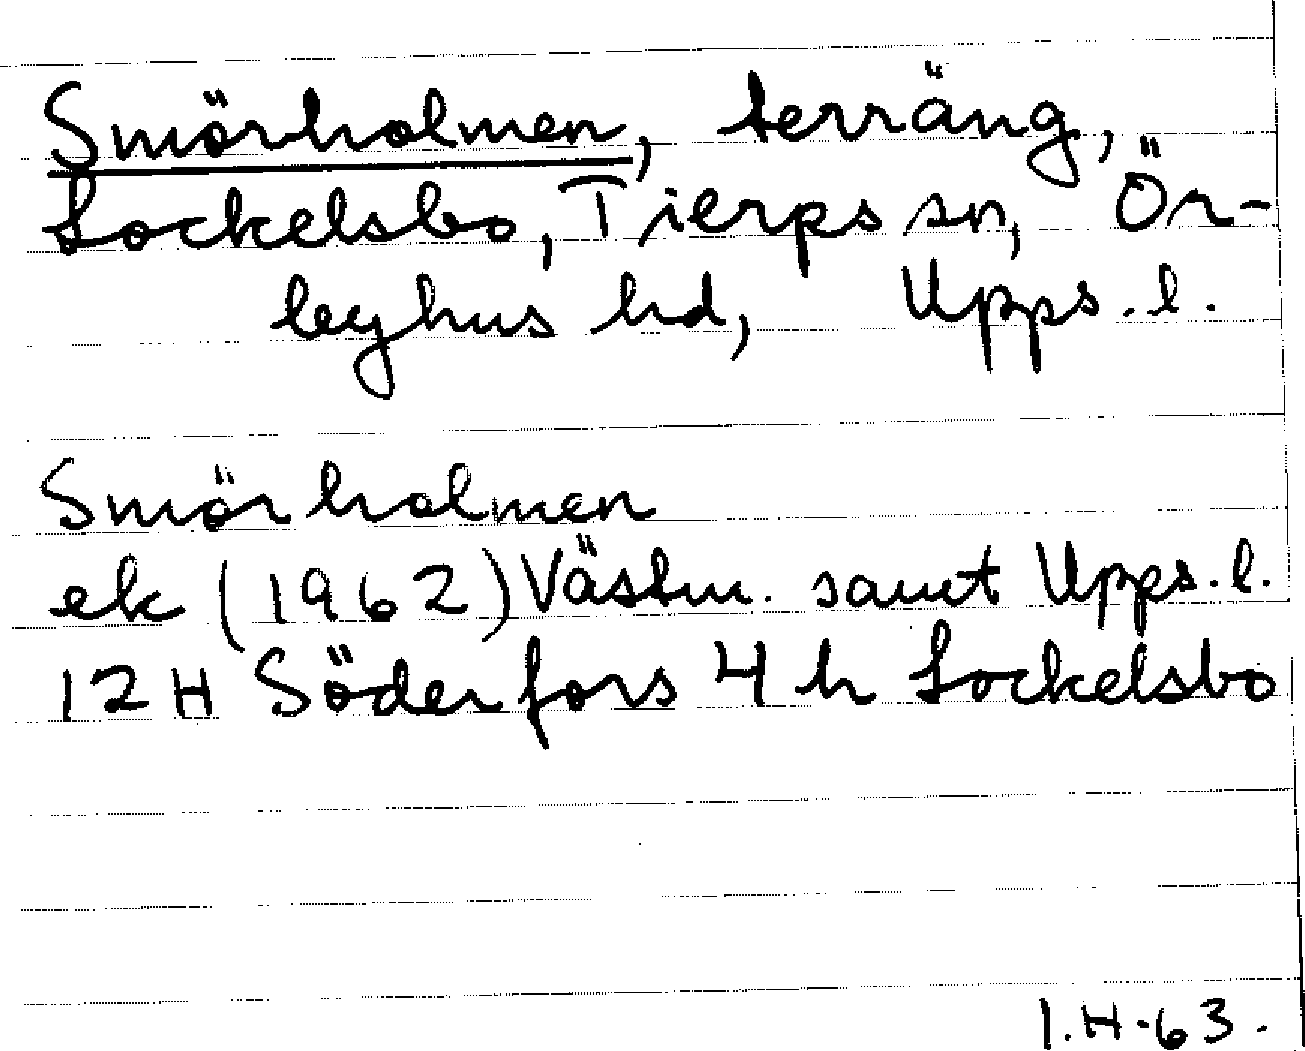 Smörholmen, terräng,
Lockelsbo, Tierps sn, Ör-
byhus hd, Upps. l.
Smörholmen
ek (1962) Västm. samt Upps. l.
12H Söderfors 4h Lockelsbo
I.H.-63.